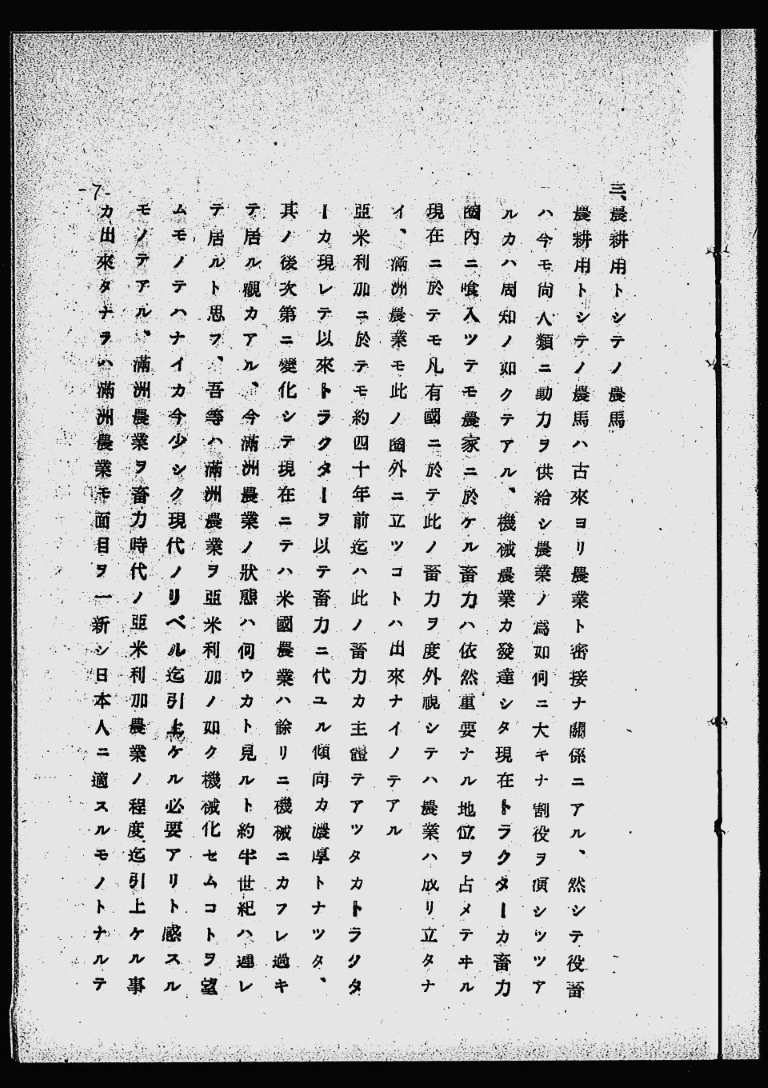 三、農耕用トシテノ農馬
農耕用トシテノ農馬ハ古來ヨリ農業ト密接ナ關係ニアル、然シテ役畜
ハ今モ尚人類ニ動力ヲ供給シ農業ノ爲如何ニ大キナ割役ヲ演シツツア
ルカハ周知ノ如クテアル、機械農業カ發達シタ現在トラクターカ畜力
圈內ニ喰入ツテモ農家ニ於ケル畜力ハ依然重要ナル地位ヲ占メテヰル
現在ニ於テモ凡有國ニ於テ此ノ畜力ヲ度外視シテハ農業ハ成リ立タナ
イ、滿洲農業モ此ノ圈外ニ立ツコトハ出來ナイノテアル
亞米利加ニ於テモ約四十年前迄ハ此ノ畜力カ主體テアツタカトラクタ
ーカ現レテ以來トラクターヲ以テ畜力ニ代ユル傾向カ濃厚トナツタ、
其ノ後次第ニ變化シテ現在ニテハ米國農業ハ餘リニ機械ニカフレ過キ
テ居ル觀カアル、今滿洲農業ノ狀態ハ何ウカト見ルト約半世紀ハ遲レ
テ居ルト思フ、吾等ハ滿洲農業ヲ亞米利加ノ如ク機械化セムコトヲ望
ムモノテハナイカ今少シク現代ノリベル迄引上ケル必要アリト感スル
モノテアル、滿洲農業ヲ畜力時代ノ亞米利加農業ノ程度迄引上ケル事
カ出來タナラハ滿洲農業モ面目ヲ一新シ日本人ニ適スルモノトナルテ
-7-